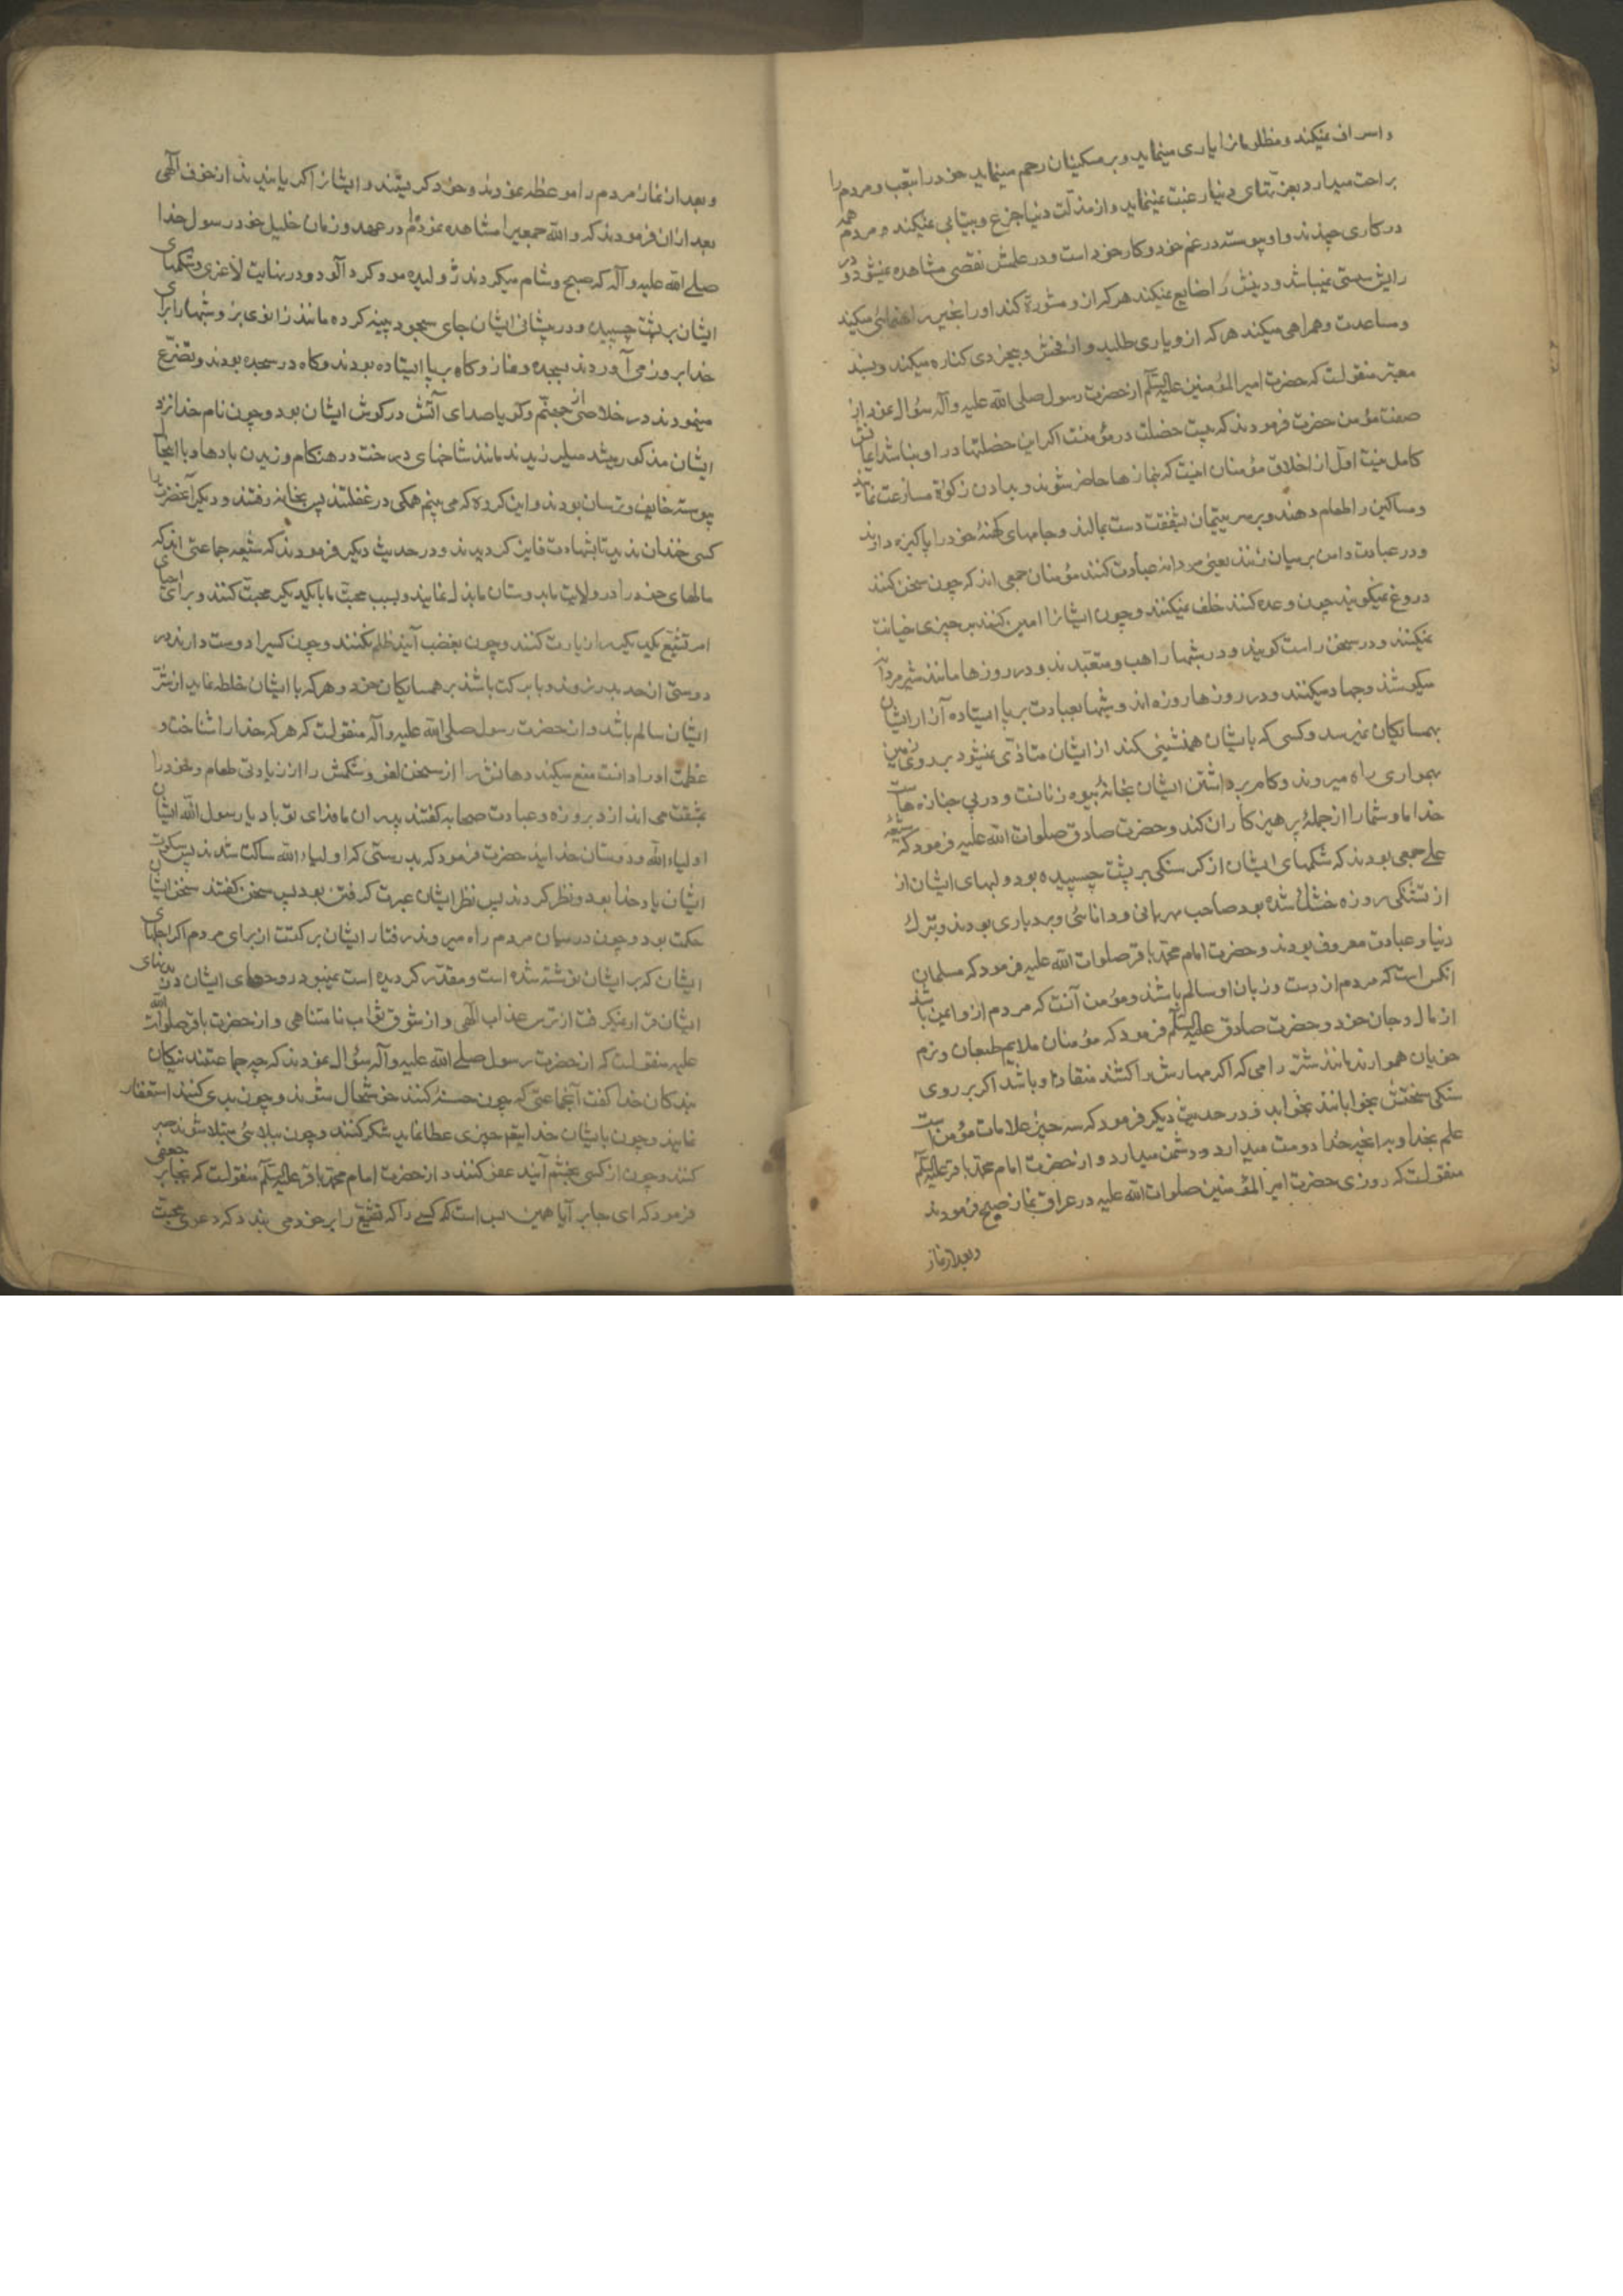 و اسراف نمیکند و مظلومانرا یاری مینماید و بر مسکینان رحم مینماید خود را بتعب و مردم را
براحت میدارد بعزتهای دنیا رغبت نمینماید و از مذلت دنیا جزع و بیتابی نمیکند و مردم همه
در کاری چندند و او پیوسته در غم خود و کار خود است و در علمش نقصی مشاهده نمیشود و در
رایش سستی نمیباشد و دینش را ضایع نمیکند هرکه ازو مشورة کند او را بخیر راهنمائی میکند
و مساعدت و همراهی میکند هر که ازو یاری طلبد و از فحش و بیخردی کناره میکند و بسند
معتبر منقولست که حضرت امیر المؤمنین علیه السلام از حضرت رسول صلی الله علیه و آله سؤال نمود از
صفت مؤمن حضرت فرمودند که بیست خصلت در مؤمنست اگر این خصلتها در او نباشد ایمانش
کامل نیست اول از اخلاق مؤمنان اینست که بنمازها حاضر شوند و بدادن زکوة مسارعت نمایند
و مساکین را طعام دهند و بر سر یتیمان بشفقت دست بمالند و جامهای کهنهٔ خود را پاکیزه دارند
و در عبادت دامن بر میان زنند یعنی مردانه عبادت کنند مؤمنان جمعی اند که چون سخن کنند
دروغ نمیگویند چون وعده کنند خلف نمیکنند و چون ایشانرا امین کنند بر چیزی خیانت
نمیکنند و در سخن راست گویند و در شبها راهب و متعبدند و در روزها مانند شیر مردانه
میکوشند و جهاد میکنند و در روزها روزه اند و شبها بعبادت برپا ایستاده آزار ایشان
بهمسایگان نمیرسد و کسی که با یشان همنشینی کند از ایشان متاذی نمیشود بر روی زمین
بهمواری راه میروند و گام برداشتن ایشان بخانهٔ بیوه زنانست و در پی جنازه هاست
خدا ما و شما را از جملهٔ پرهیزکاران کند و حضرت صادق صلوات الله علیه فرمود که شیعه
علی جمعی بودند که شکمهای ایشان از گرسنگی بر پشت چسپیده بود و لبهای ایشان از
از تشنگی روزه خشک شده بود صاحب مهربانی و دانائی و بردباری بودند و بترک
دنیا و عبادت معروف بودند و حضرت امام محمد باقر صلوات الله علیه فرمود که مسلمان
آنکس است که مردم از دست و زبان او سالم باشند و مؤمن آنست که مردم ازو ایمن باشند
از مال و جان خود و حضرت صادق علیه السلام فرمود که مؤمنان ملایم طبعان و نرم
خویان هموارند مانند شتر رامی که اگر مهارش را کشند منقاد او باشد اگر بر روی
سنگی سختش بخوابانند بخوابد و در حدیث دیگر فرمود که سه چیز علامات مؤمن است
علم بخدا و بر آنچه خدا دوست میدارد و دشمن میدارد و از حضرت امام محمد باقر علیه السلام
منقولست که روزی حضرت امیر المؤمنین صلوات الله علیه در عراق نماز صبح فرمودند
و بعد از نماز
و بعد از نماز مردم را موعظه نمودند و خود گریستند و ایشانرا گریانیدند از خوف الهی
بعد از ان فرمودند که و الله جمعیرا مشاهده نمودم در عهد و زمان خلیل خود رسول خدا
صلی الله علیه و آله که صبح و شام میکردند ژولیده مو و گرد آلود و در نهایت لاغری و شکمهای
ایشان بر پشت چسپیده و در پیشانی ایشان جای سجود پینه کرده مانند زانوی بز و شبها را برای
خدا بروز می آوردند بسجده و نماز و گاه برپا ایستاده بودند و گاه در سجده بودند و تضرع
مینمودند در خلاصی از جهنم و گویا صدای آتش در گوش ایشان بود و چون نام خدا نزد
ایشان مذکور میشد میلرزیدند مانند شاخهای درخت در هنگام وزیدن بادها و با اینحال
پیوسته خایف و ترسان بودند و این گروه که می بینم همگی در غفلتند پس بخانه رفتند و دیگر آنحضرت را
کسی خندان ندید تا بشهادت فایز گردیدند و در حدیث دیگر فرمودند که شیعه جماعتی اند که
مالهای خود را در ولایت ما بدوستان ما بذل نمایند و بسبب محبت ما با یکدیگر محبت کنند و برای احیای
امر تشیع یکدیگر را زیارت کنند و چون بغضب آیند ظلم نکنند و چون کسیرا دوست دارند در
دوستی از حد بدر نروند و با برکت باشند بر همسایگان خود و هرکه با ایشان خلطه نماید از شر
ایشان سالم باشد و از حضرت رسول صلی الله علیه و آله منقولست که هر که خدا را شناخت و
عظمت او را دانست منع میکند دهانش را از سخن لغو و شکمش را از زیادتی طعام و خود را
بمشقت می اندازد بروزه و عبادت صحابه گفتند پدران ما فدای تو باد یا رسول الله ایشان
اولیاء الله و دوستان خدایند حضرت فرمود که بدرستی که اولیاء الله ساکت شدند پس سکوت
ایشان یاد خدا بود و نظر کردند پس نظر ایشان عبرت گرفتن بود پس سخن گفتند سخن ایشان
حکمت بود و چون در میان مردم راه میروند رفتار ایشان برکتست از برای مردم اگر اجلهای
ایشان که بر ایشان نوشته شده است و مقدر گردیده است نمیبود روحهای ایشان در بدنهای
ایشان قرار نمیگرفت از ترس عذاب الهی و از شوق ثواب نامتناهی و از حضرت باقر صلوات الله
علیه منقولست که از حضرت رسول صلی الله علیه و آله سؤال نمودند که چه جماعتند نیکان
بندگان خدا گفت آنجماعتی که چون حسنهٔ کنند خوشحال شوند و چون بدی کنند استغفار
نمایند و چون بایشان خدایتعالی چیزی عطا نماید شکر کنند و چون ببلائی مبتلا شوند صبر
کنند و چون از کسی بخشم آیند عفو کنند و از حضرت امام محمد باقر علیه السلام منقولست که بجابر جعفی
فرمود که ای جابر آیا همین بس است که کسی را که تشیع را بر خود می بندد که دعوی محبت